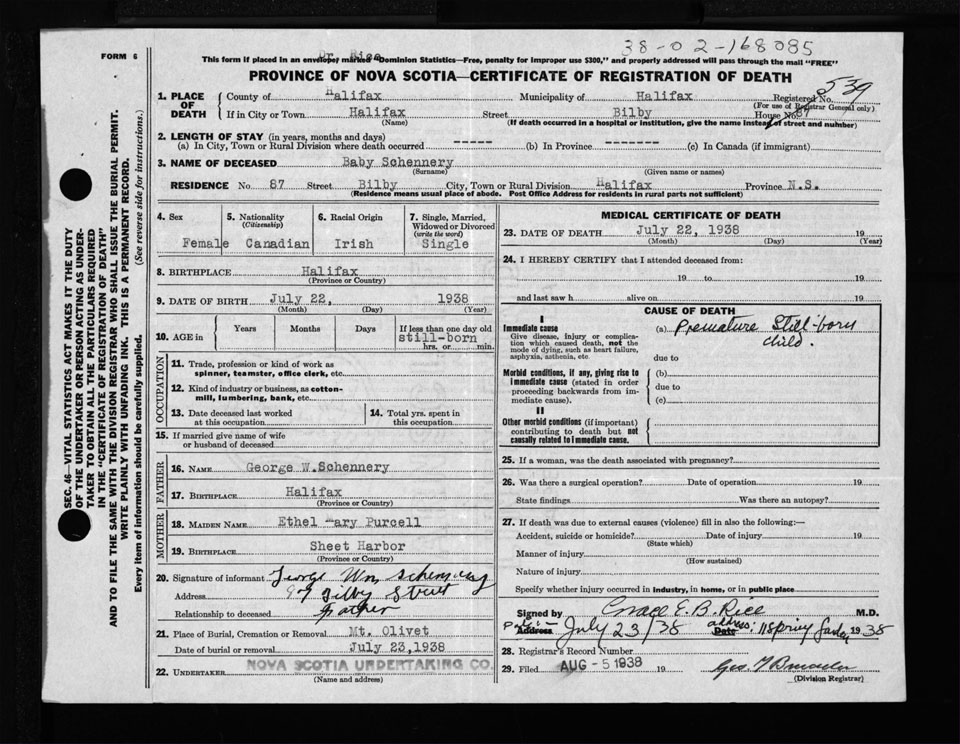 38-02-168085
FORM 6
Dr. Rice
This form if placed in an envelope, marked "Dominion Statistics—Free, penalty for improper use $300," and properly addressed will pass through the mail "FREE"
PROVINCE OF NOVA SCOTIA—CERTIFICATE OF REGISTRATION OF DEATH
539
1. PLACE OF DEATH
County of Halifax Municipality of Halifax Registered No.
(For use of Registrar General only)
If in City or Town Halifax Street Bilby House No. 87
(Name) (If death occurred in a hospital or institution, give the name instead of street and number)
2. LENGTH OF STAY (in years, months and days)
(a) In City, Town or Rural Division where death occurred ------ (b) In Province ------- (c) In Canada (if immigrant)
3. NAME OF DECEASED Baby Schennery
(Surname) (Given name or names)
RESIDENCE No. 87 Street Bilby City, Town or Rural Division Halifax Province N.S.
(Residence means usual place of abode. Post Office Address for residents in rural parts not sufficient)
4. Sex Female
5. Nationality (Citizenship) Canadian
6. Racial Origin Irish
7. Single, Married, Widowed or Divorced (write the word) Single
8. BIRTHPLACE Halifax
(Province or Country)
9. DATE OF BIRTH July 22, 1938
(Month) (Day) (Year)
10. AGE in Years Months Days If less than one day old
still-born
hrs. or min.
OCCUPATION
11. Trade, profession or kind of work as
spinner, teamster, office clerk, etc.
12. Kind of industry or business, as cotton-
mill, lumbering, bank, etc.
13. Date deceased last worked
at this occupation
14. Total yrs. spent in
this occupation
15. If married give name of wife
or husband of deceased
FATHER
16. NAME George W.Schennery
17. BIRTHPLACE Halifax
(Province or Country)
MOTHER
18. MAIDEN NAME Ethel Mary Purcell
19. BIRTHPLACE Sheet Harbor
(Province or Country)
20. Signature of informant George Wm Schennery
Address 87 Bilby Street
Relationship to deceased Father
21. Place of Burial, Cremation or Removal Mt. Olivet
Date of burial or removal July 23,1938
22. UNDERTAKER NOVA SCOTIA UNDERTAKING CO.
(Name and address)
MEDICAL CERTIFICATE OF DEATH
23. DATE OF DEATH July 22, 1938 19
(Month) (Day) (Year)
24. I HEREBY CERTIFY that I attended deceased from:
19 to 19
and last saw h alive on 19
CAUSE OF DEATH
I
Immediate cause
Give disease, injury or complica-
tion which caused death, not the
mode of dying, such as heart failure,
asphyxia, asthenia, etc.
(a) Premature Still-born
child.
due to
Morbid conditions, if any, giving rise to
immediate cause (stated in order
proceeding backwards from im-
mediate cause).
(b)
due to
(c)
II
Other morbid conditions (if important)
contributing to death but not
causally related to immediate cause.
25. If a woman, was the death associated with pregnancy?
26. Was there a surgical operation? Date of operation 19
State findings Was there an autopsy?
27. If death was due to external causes (violence) fill in also the following:—
Accident, suicide or homicide? Date of injury 19
(State which)
Manner of injury
(How sustained)
Nature of injury
Specify whether injury occurred in industry, in home, or in public place
Signed by Grace E. B. Rice M.D.
Address July 23/38 address: Date 118 Spring Garden 1938
28. Registrar's Record Number
29. Filed AUG -5 1938 19
(Division Registrar)
SEC. 46—VITAL STATISTICS ACT MAKES IT THE DUTY
OF THE UNDERTAKER OR PERSON ACTING AS UNDER-
TAKER TO OBTAIN ALL THE PARTICULARS REQUIRED
IN THE "CERTIFICATE OF REGISTRATION OF DEATH"
AND TO FILE THE SAME WITH THE DIVISION REGISTRAR WHO SHALL ISSUE THE BURIAL PERMIT.
WRITE PLAINLY WITH UNFADING INK. THIS IS A PERMANENT RECORD.
Every item of information should be carefully supplied. (See reverse side for instructions.)